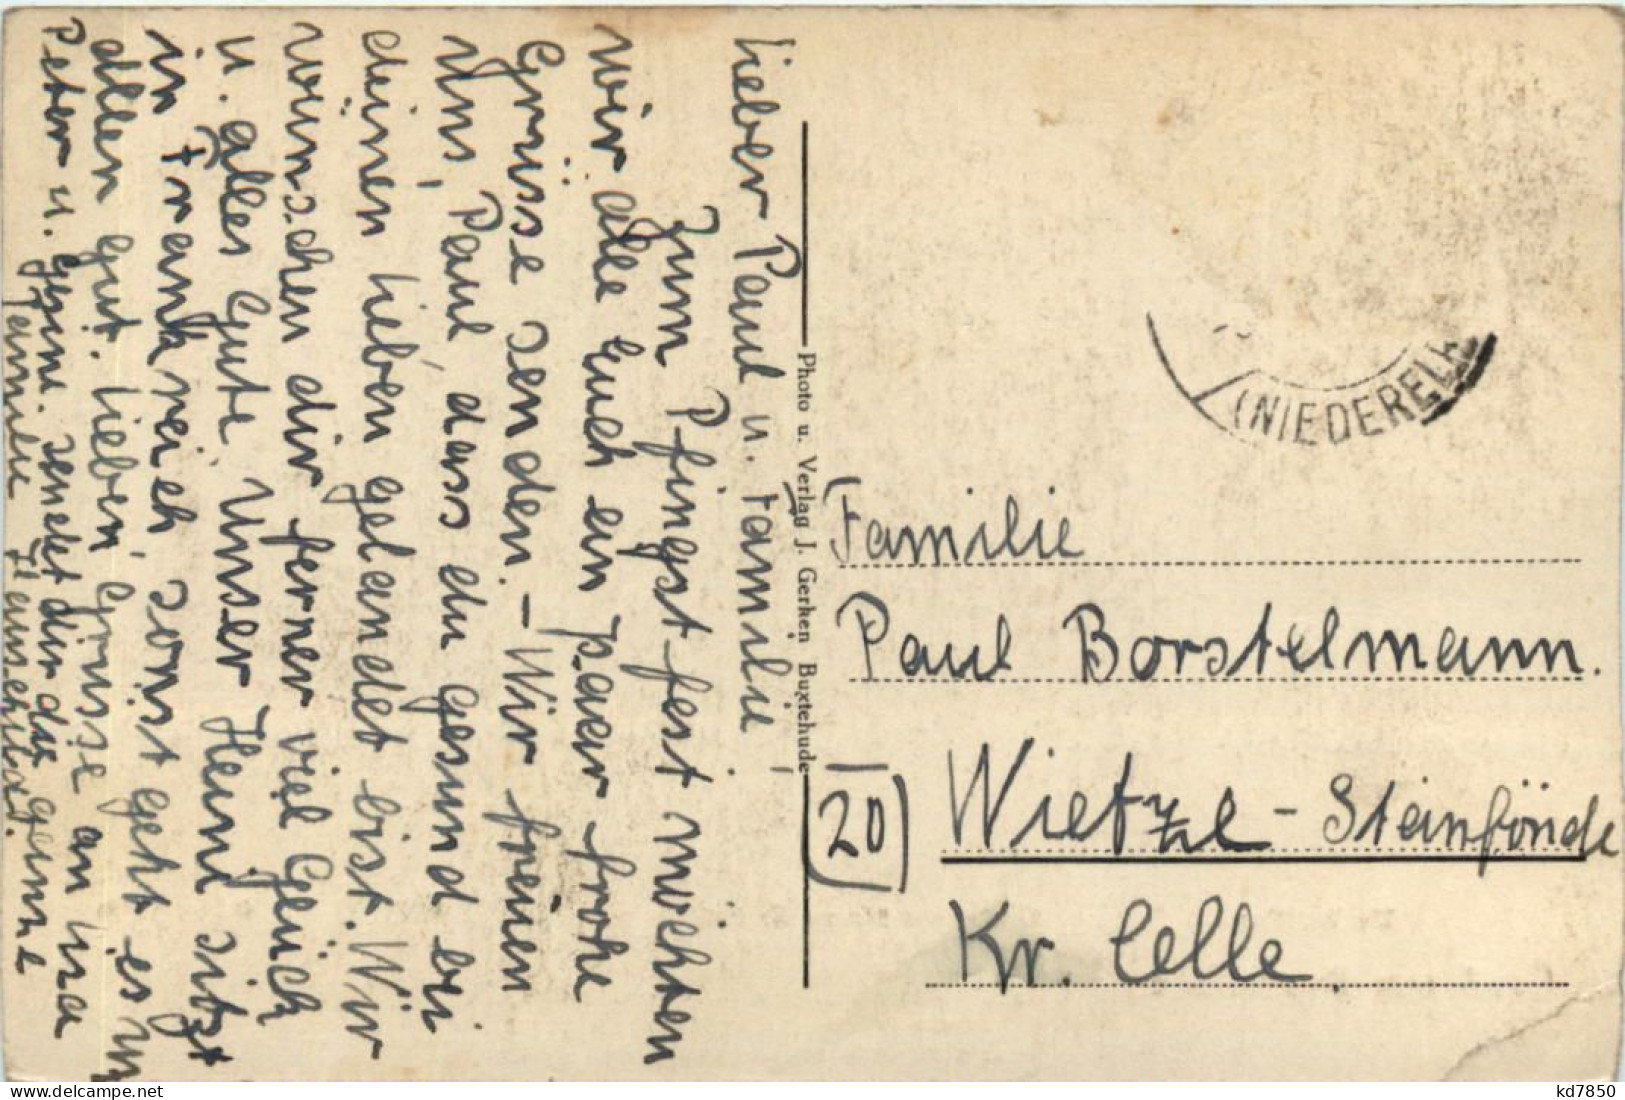 Lieber Paul u. Familie
Zum Pfingstfest möchten
wir alle Euch ein paar frohe
Grüsse senden. - Wir freuen
uns, Paul, dass du gesund bei
deinen Lieben gelandet bist. Wir
wünschen dir ferner viel Glück
u. alles Gute. Unser Heini sitzt
in Frankreich, sonst geht es uns
allen gut. Lieben Grüsse an
Peter u. sendet dir die
Familie
Photo u. Verlag J. Gerken Buxtehude
(NIEDEREL
Familie
Paul Borstelmann.
(20)
Wietze - Steinförde
Kr. Celle.
kd7850